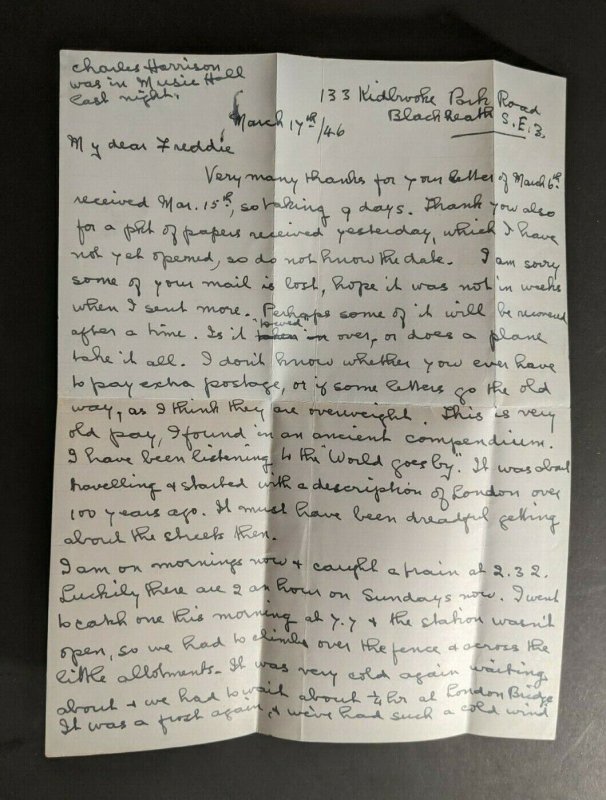 Charles Harrison
was in Music Hall
last night.
133 Kidbrooke Park Road
Blackheath S.E.3.
March 17th/46
My dear Freddie
Very many thanks for your letter of March 6th
received Mar. 15th, so taking 9 days. Thank you also
for a pkt of papers received yesterday, which I have
not yet opened, so do not know the date. I am sorry
some of your mail is lost, hope it was not in weeks
when I sent more. Perhaps some of it will be recovered
after a time. Is it "towed" over, or does a plane
take it all. I don't know whether you ever have
to pay extra postage, or if some letters go the old
way, as I think they are overweight. This is very
old pay, I found in an ancient compendium.
I have been listening to the "World goes by". It was about
travelling & started with a description of London over
100 years ago. It must have been dreadful getting
about the streets then.
I am on mornings now & caught a train at 2.32.
Luckily there are 2 an hour on Sundays now. I went
to catch one this morning at 7.7 & the station wasn't
open, so we had to climb over the fence & across the
little allotments. It was very cold again waiting
about & we had to wait about ¼ hr at London Bridge
It was a frost again, & we've had such a cold wind